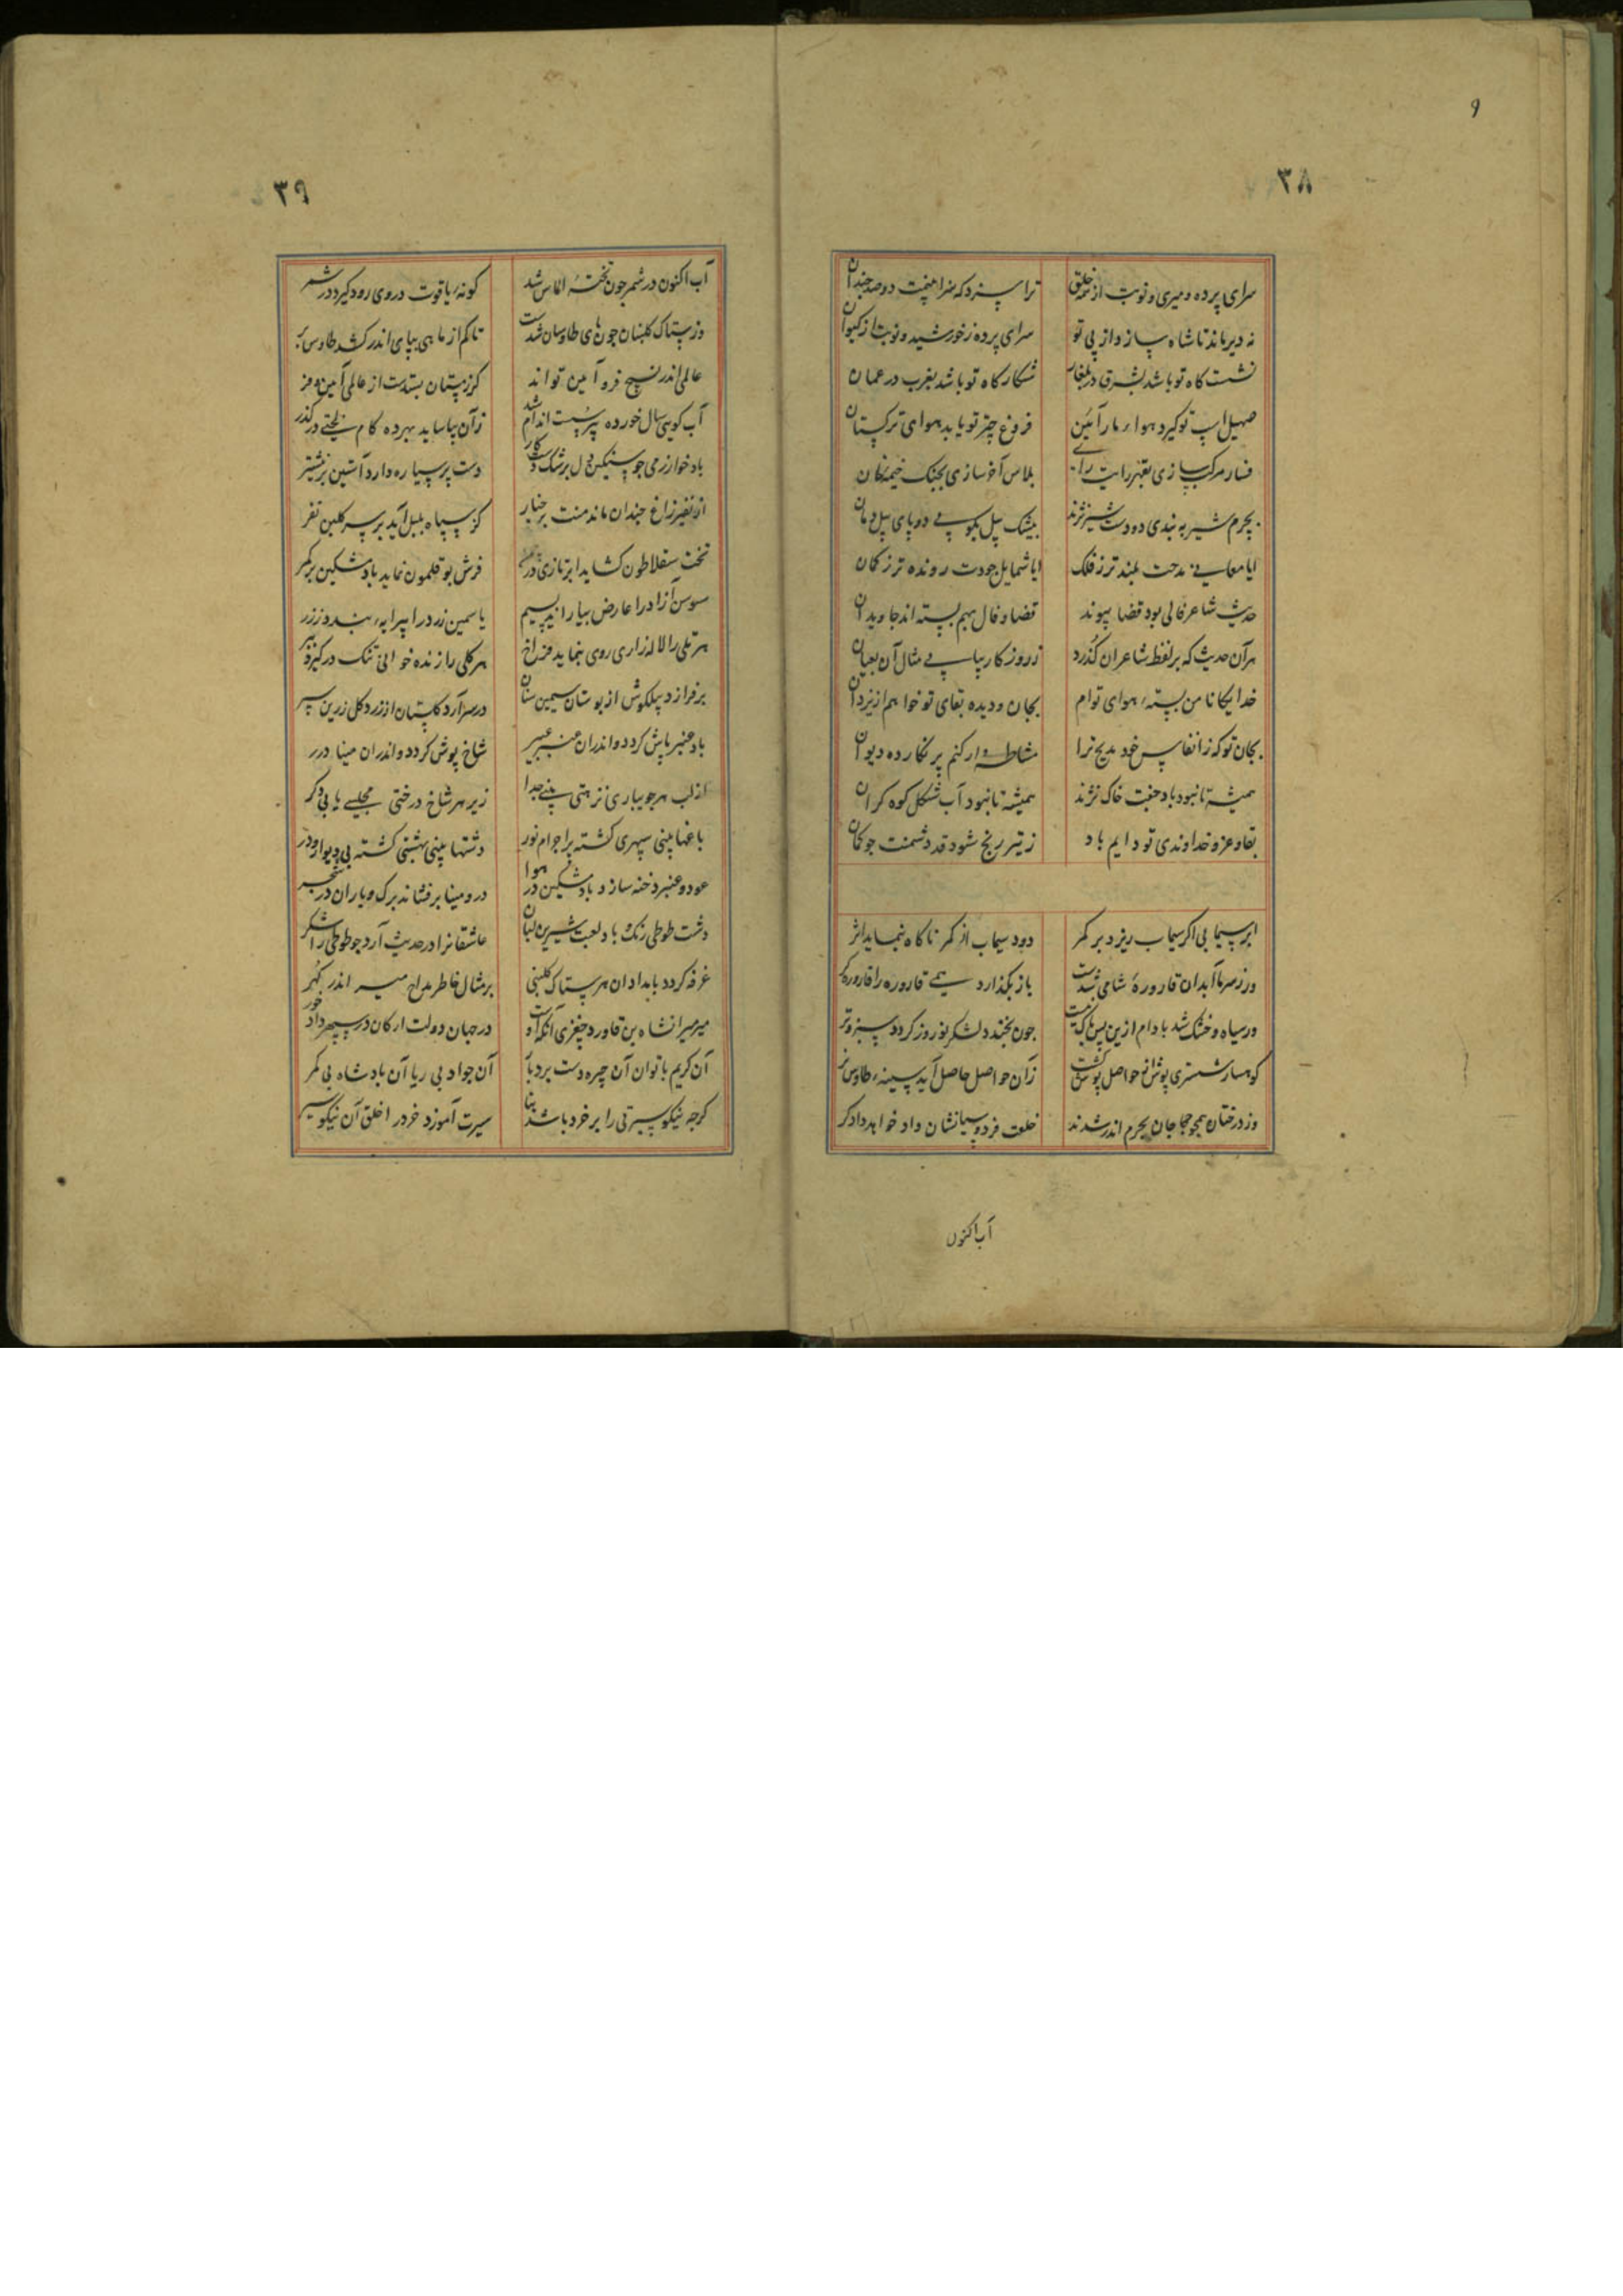 ۹
۳۸
سرای پرده و میری و نوبت از همه خلق ترا سزد که هنرا منهت دو صد چندان
نه دیر ماند تا شاه سازد از پی تو سرای پرده ز خورشید و نوبت از کیوان
نشست کاه تو باشد بشرق در بلغار شکار کاه تو باشد بغرب در عمان
صهیل اسب تو کیرد هواء فروغ چتر تو یابد هوای ترکستان
فسار مرکب سازی بقهر رایت رای پلاس آخر سازی بجنک خیمه خان
بچرم شیر به بندی دو دست شیر نژند بیشک پیل بکوبی دو پای پیل دمان
ایا معانی مدحت بلندتر ز فلک ایا شمایل جودت رونده تر ز کمان
حدیث شاعر فالی بود قضا پیوند قضا و فال بهم بسته اند جاویدان
هر آن حدیث که بر لفظ شاعران گذرد ز روزکار بیابی مثال آن بعیان
خدایکانا من بسته هوای توام بجان و دیده بقای تو خواهم از یزدان
بجان تو که ز انفاس خود مدیح ترا مشاطه وار کنم پر نکار ده دیوان
همیشه تا نبود باد جفت خاک نژند همیشه تا نبود آب شکل کوه کران
بقا و عز و خداوندی تو دایم باد ز تیر رنج شود قد دشمنت جو کمان
ابر سیمابی اکر سیماب ریزد بر کمر دود سیماب از کمر ناکاه بنماید اثر
ور ز سرما آبدان قارورهٔ شامی شدست باز بکذارد همی قاروره را قاروره کر
ور سیاه و خشک شد بادام ازین پس باک نیست جون بخندد لشکر نوروز کردد سبز و تر
کوهسار ششتری پوش از حواصل پوش کشت زان حواصل حاصل آید سینه طاوس نر
وز درختان همچو حجاجان بحرم اندر شدند خلعت فردوسیانشان داد خواهد دادکر
آب اکنون
۳۹
آب اکنون در شمر جون تختهٔ الماس شد کونهٔ یاقوت در وی رود کیرد در شمر
وز ستاک کلبنان چون پای طاوسان شدست تا کم از ماهی بپای اندر کشد طاوس پر
عالمی اندر نسیج فرو آمین تواند کز زمستان بستدست از عالمی آمین و فر
آب کویی سال خورده پیر سست اندام شد زان بیاساید بهر ده کام لختی در کذر
باد خوارزمی جو سنکین دل بزشک کار دست پر سیاره دارد آستین پر نیشتر
از نفیر زاغ چندان ماند منت بر چنار کز سپاه بلبل آید بر سر کلبن نفر
تخت سقلاطون کشاید ابر تازی فرش بوقلمون نماید باد مشکین بر کمر
سوسن آزاد را عارض بیاراید بسیم یاسمین زرد را پیرایه بندد ز زر
هر تلی را لاله زاری روی بنماید فراخ هر کلی را زنده خوانی تنک درکیرد ببر
برفرازد پیلکوش از بوستان سیمین سنان در سر آرد کلستان از زرد کل زرین سپر
باد عنبر پاش کردد و اندران عنبر عبیر شاخ پوش کردد و اندران مینا درر
از لب هر جویباری نزهتی بینی جدا زیر هر شاخ درختی مجلسی یابی دکر
باغها بینی سپهری کشته پر اجرام نور دشتها بینی بهشتی کشته بی دیوار و در
عود و عنبر دخنه سازد باد مشکین در هوا در و مینا برفشاند برک و باران در شجر
دشت طوطی رنک با لعبت شیرین لبان عاشقانرا در حدیث آرد جو طوطی را شکر
غرفه کردد بامدادان هر ستاک کلبنی بر مثال خاطر مداح میر اندر کهر
میر میرانشاه بن قاورد جغری آنکه اوست در جهان دولت ارکان در سپهر داد خور
آن کریم با توان آن چیره دست بردبار آن جواد بی ریا آن بادشاه بی کمر
کرجه نیکو سیرتی را بر خرد باشد بنا سیرت آموزد خرد ز اخلاق آن نیکو سیر